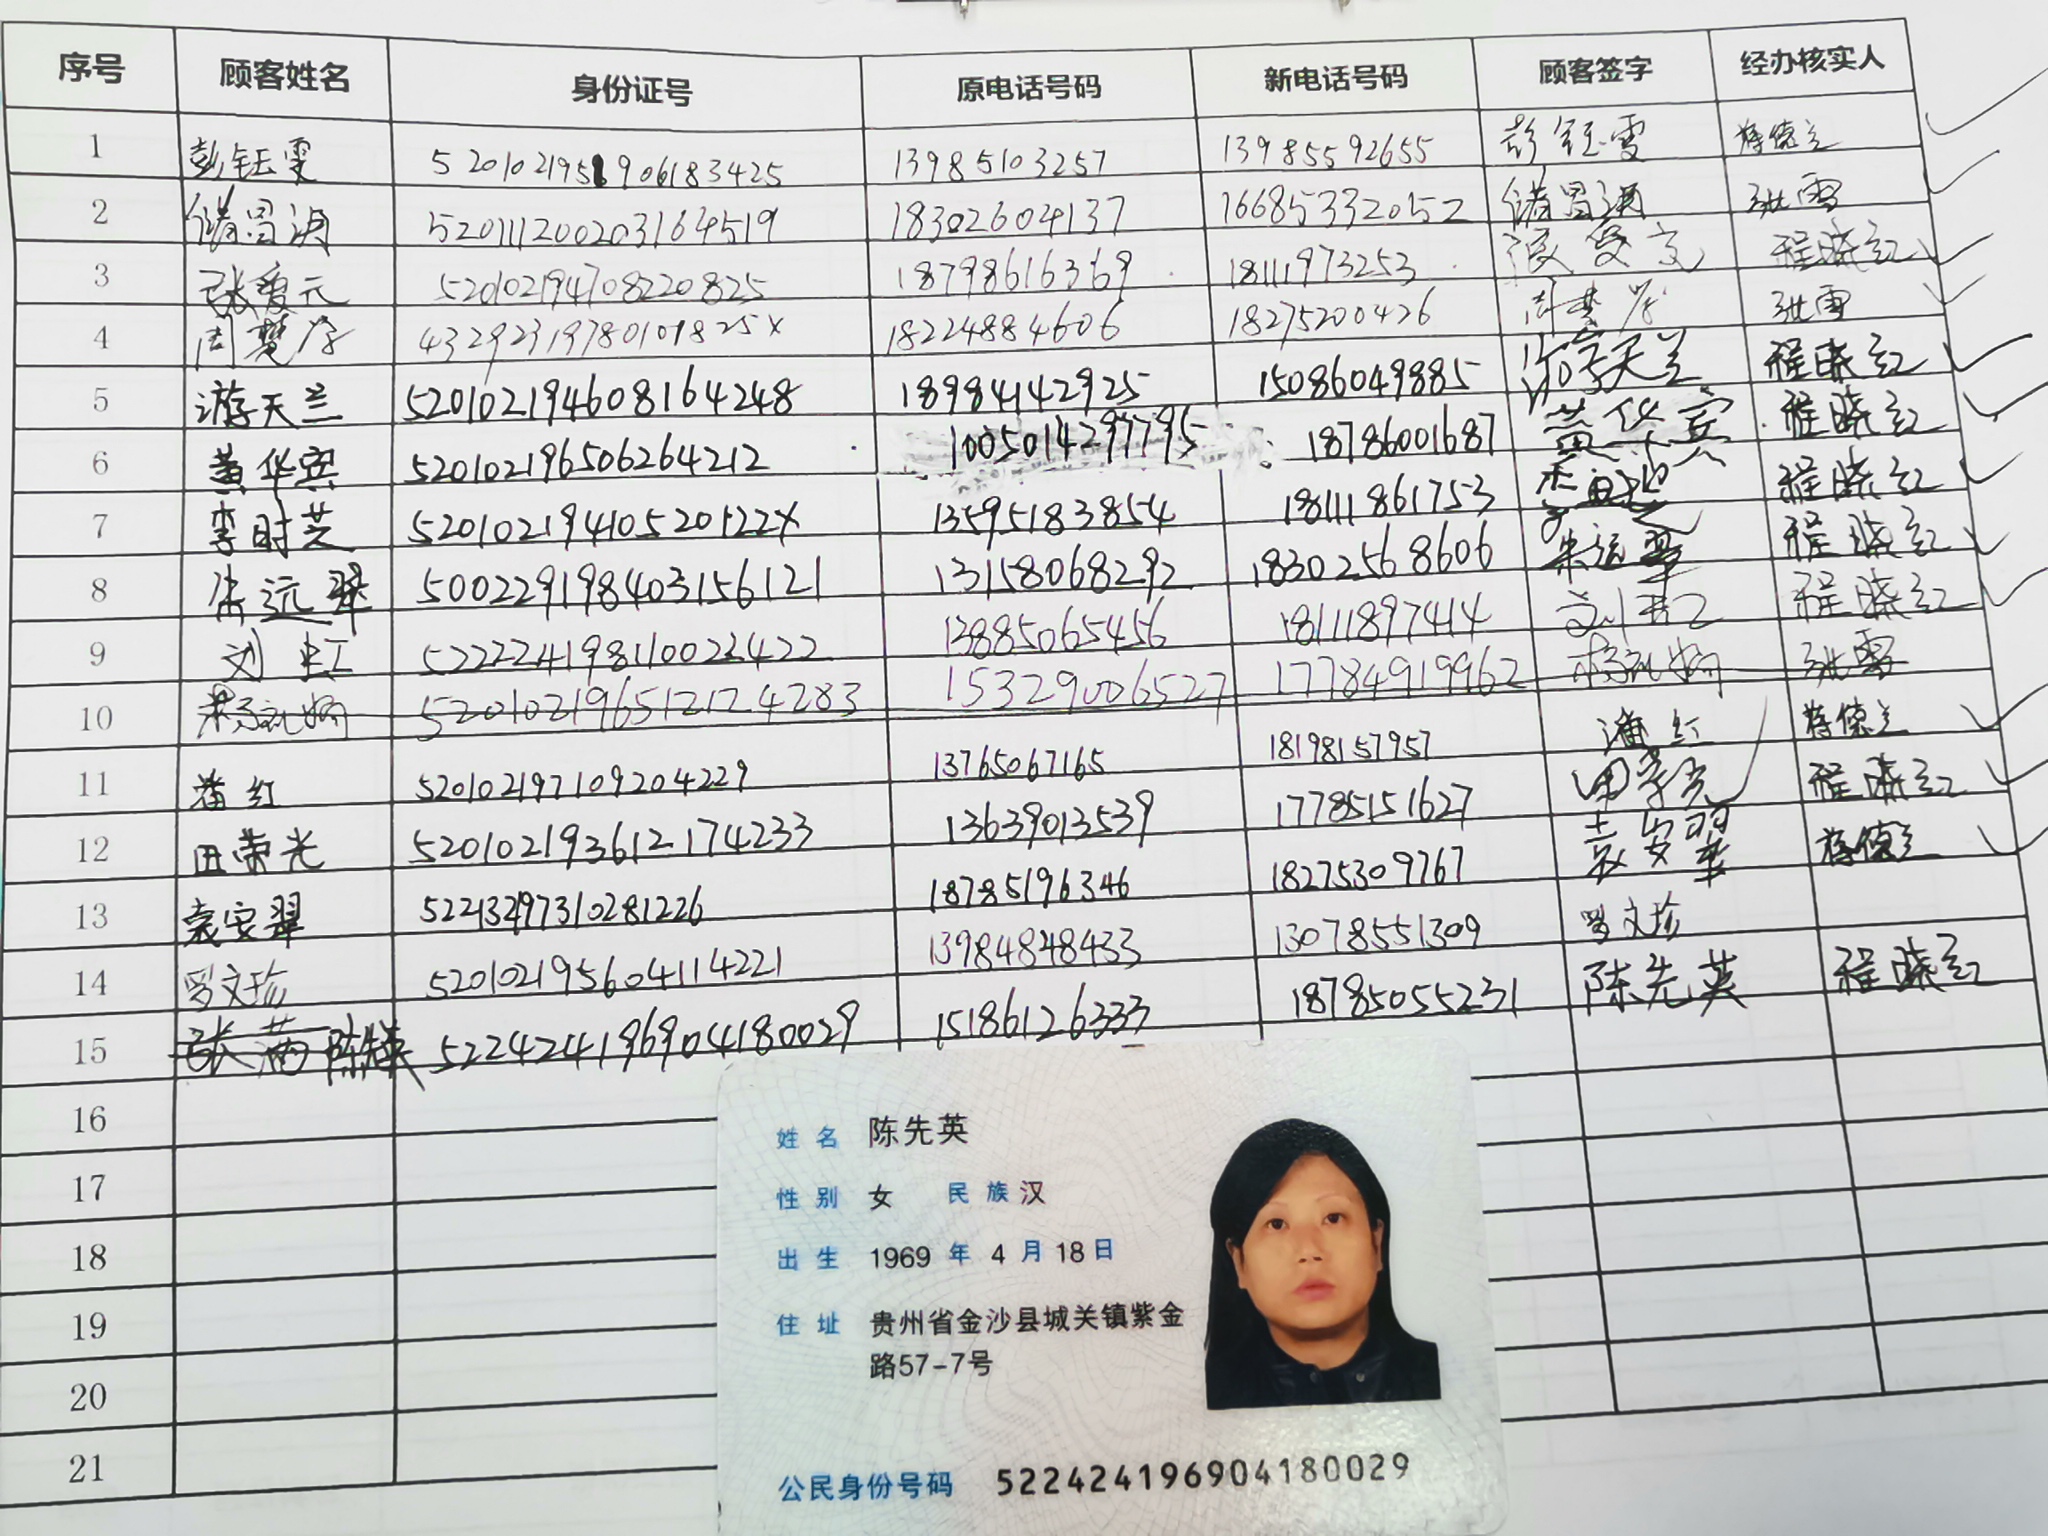 序号 顾客姓名 身份证号 原电话号码 新电话号码 顾客签字 经办核实人
1 彭钰雯 520102195906183425 13985103257 13985592655 彭钰雯 蒋德兰
2 520111200203164519 18302604137 16685332052 张雪
3 张爱元 520102194708220825 18798616369 18111973253 程晓红
4 43292319780101825X 18224884606 18275200426 张雪
5 游天兰 520102194608164248 18984142925 15086049885 游天兰 程晓红
6 黄华宾 520102196506264212 18786001687 黄华宾 程晓红
7 李时芝 52010219410520122X 13595183854 18111861753 程晓红
8 朱远翠 500229198403156121 13158068292 18302568606 朱远翠 程晓红
9 刘虹 522224198110022422 13885065456 18111897414 程晓红
10 520102196512124283 15329006527 17784919962 张雪
11 潘红 520102197109204229 13765067165 18198157957 潘红 蒋德兰
12 田荣光 520102193612174233 13639013539 17785151627 田荣光 程晓红
13 袁安翠 52213297310281226 18785196346 18275309767 袁安翠 蒋德兰
14 罗文珍 520102195604114221 13984848433 13078551309 罗文珍
15 张满 陈先英 522424196904180029 15186126333 18785055231 陈先英 程晓红
16
17
18
19
20
21
姓名 陈先英
性别 女 民族 汉
出生 1969 年 4 月 18 日
住址 贵州省金沙县城关镇紫金
路57-7号
公民身份号码 522424196904180029